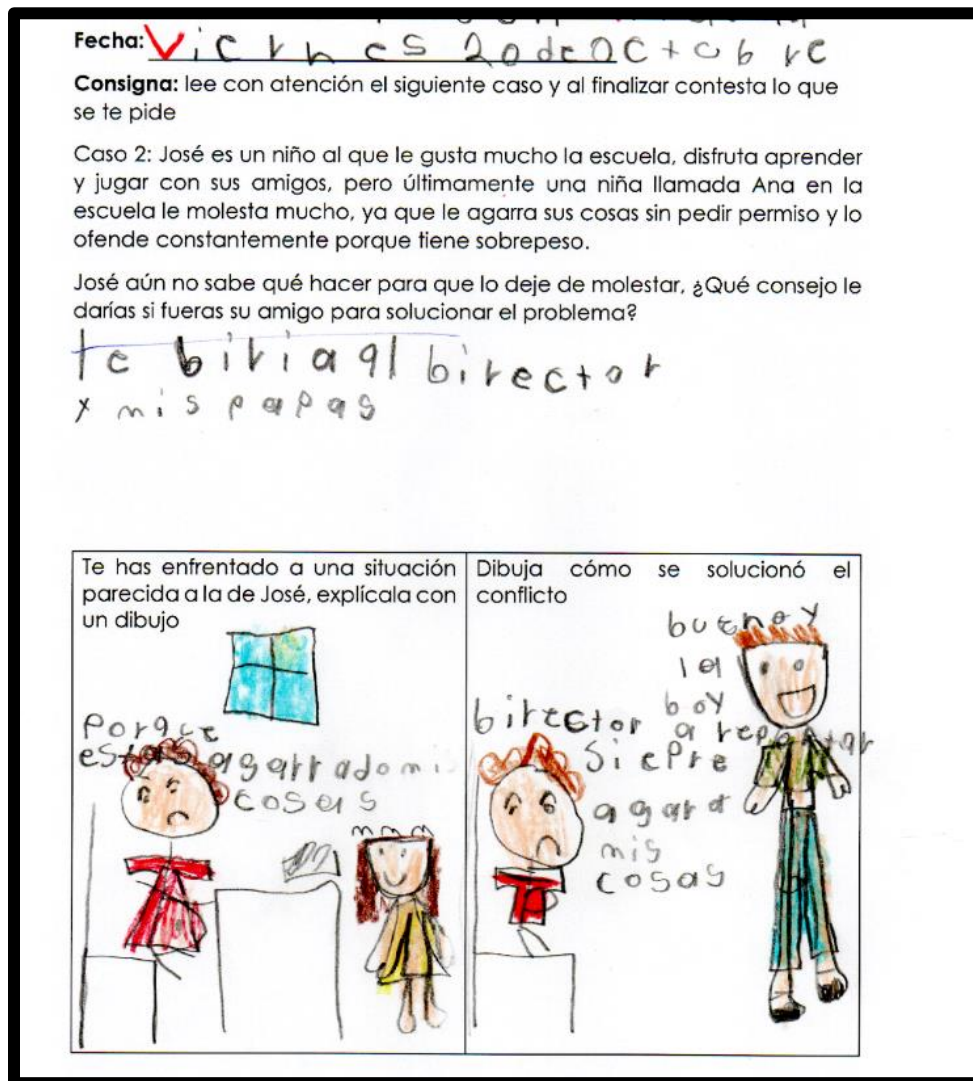 Fecha: Viernes 20 de Octobre
Consigna: lee con atención el siguiente caso y al finalizar contesta lo que
se te pide
Caso 2: José es un niño al que le gusta mucho la escuela, disfruta aprender
y jugar con sus amigos, pero últimamente una niña llamada Ana en la
escuela le molesta mucho, ya que le agarra sus cosas sin pedir permiso y lo
ofende constantemente porque tiene sobrepeso.
José aún no sabe qué hacer para que lo deje de molestar, ¿Qué consejo le
darías si fueras su amigo para solucionar el problema?
le biria al birector
y mis papas
Te has enfrentado a una situación
parecida a la de José, explícala con
un dibujo
porqce
estas agarrado mi
cosas
Dibuja cómo se solucionó el
conflicto
bueno y
la
boy
a reportar
birector
Siepre
agara
mis
cosas